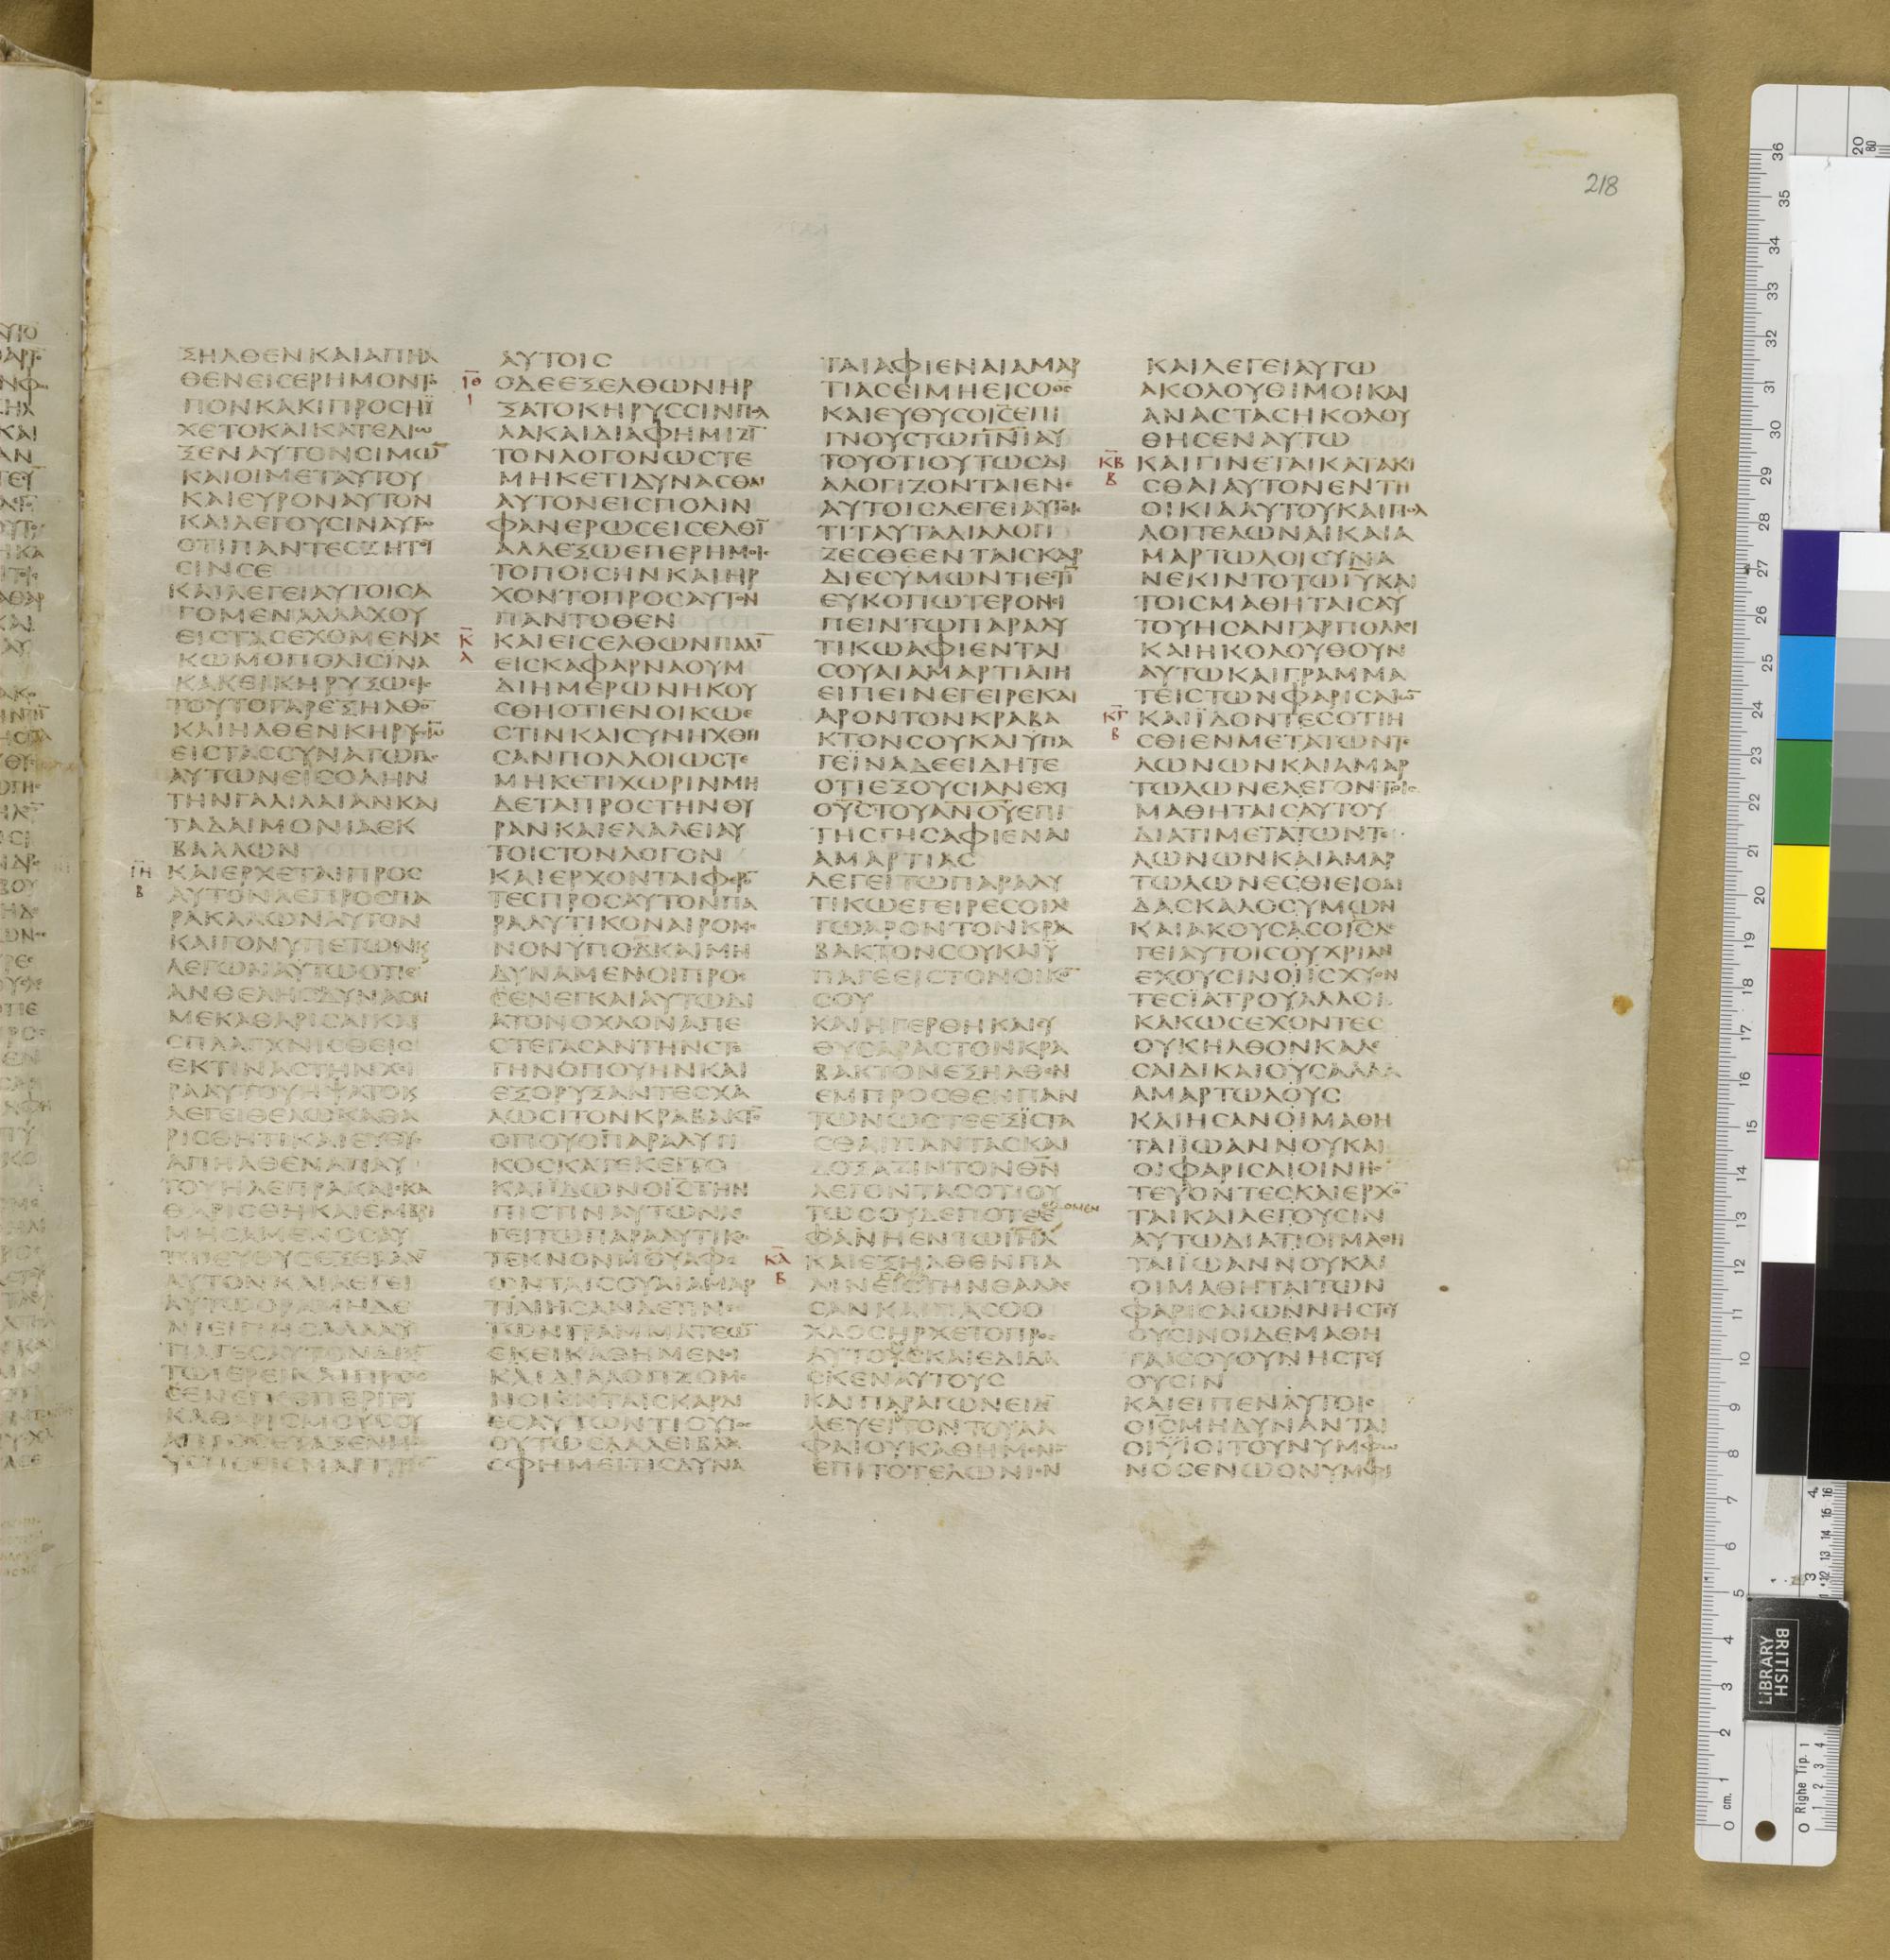 218
ΞΗΛΘΕΝΚΑΙΑΠΗΛ
ΘΕΝΕΙCΕΡΗΜΟΝΤΟ
ΠΟΝΚΑΚΙΠΡΟCΗΪ
ΧΕΤΟΚΑΙΚΑΤΕΔΙΩ
ΞΕΝΑΥΤΟΝCΙΜΩ̅
ΚΑΙΟΙΜΕΤΑΥΤΟΥ
ΚΑΙΕΥΡΟΝΑΥΤΟΝ
ΚΑΙΛΕΓΟΥCΙΝΑΥΤΩ
ΟΤΙΠΑΝΤΕCΖΗΤΟΥ
CΙΝCΕ
ΚΑΙΛΕΓΕΙΑΥΤΟΙCΑ
ΓΟΜΕΝΑΛΛΑΧΟΥ
ΕΙCΤΑCΕΧΟΜΕΝΑC
ΚΩΜΟΠΟΛΙCΪΝΑ
ΚΑΚΕΙΚΗΡΥΞΩΕΙC
ΤΟΥΤΟΓΑΡΕΞΗΛΘΟ̅
ΚΑΙΗΛΘΕΝΚΗΡΥCCΩ̅
ΕΙCΤΑCCΥΝΑΓΩΓΑC
ΑΥΤΩΝΕΙCΟΛΗΝ
ΤΗΝΓΑΛΙΛΑΙΑΝΚΑΙ
ΤΑΔΑΙΜΟΝΙΑΕΚ
ΒΑΛΛΩΝ
ΙΗ Β
ΚΑΙΕΡΧΕΤΑΙΠΡΟC
ΑΥΤΟΝΛΕΠΡΟCΠΑ
ΡΑΚΑΛΩΝΑΥΤΟΝ
ΚΑΙΓΟΝΥΠΕΤΩΝϏ
ΛΕΓΩΝΑΥΤΩΟΤΙΕ
ΑΝΘΕΛΗCΔΥΝΑCΑΙ
ΜΕΚΑΘΑΡΙCΑΙΚΑΙ
CΠΛΑΓΧΝΙCΘΕΙC
ΕΚΤΙΝΑCΤΗΝΧΕΙ
ΡΑΑΥΤΟΥΗΨΑΤΟΚ
ΛΕΓΕΙΘΕΛΩΚΑΘΑ
ΡΙCΘΗΤΙΚΑΙΕΥΘΥC
ΑΠΗΛΘΕΝΑΠΑΥ
ΤΟΥΗΛΕΠΡΑΚΑΙΕΚΑ
ΘΑΡΙCΘΗΚΑΙΕΜΒΡΙ
ΜΗCΑΜΕΝΟCΑΥ
ΤΩΕΥΘΥCΕΞΕΒΑΛΕ̅
ΑΥΤΟΝΚΑΙΛΕΓΕΙ
ΑΥΤΩΟΡΑΜΗΔΕ
ΝΙΕΙΠΗCΑΛΛΑΥ
ΠΑΓΕCΑΥΤΟΝΔΙΞΟ̅
ΤΩΙΕΡΕΙΚΑΙΠΡΟC
ΕΝΕΓΚΕΠΕΡΙΤΟΥ
ΚΑΘΑΡΙCΜΟΥCΟΥ
ΑΠΡΟCΕΤΑΞΕΝΜΩ
ΥCΗCΕΙCΜΑΡΤΥΡΙΟ̅
ΑΥΤΟΙC
ΙΘ Ι
ΟΔΕΕΞΕΛΘΩΝΗΡ
ΞΑΤΟΚΗΡΥCCΙΝΠΟΛ
ΛΑΚΑΙΔΙΑΦΗΜΙΖΙ̅
ΤΟΝΛΟΓΟΝΩCΤΕ
ΜΗΚΕΤΙΔΥΝΑCΘΑΙ
ΑΥΤΟΝΕΙCΠΟΛΙΝ
ΦΑΝΕΡΩCΕΙCΕΛΘΙ̅
ΑΛΛΕΞΩΕΠΕΡΗΜΟΙC
ΤΟΠΟΙCΗΝΚΑΙΗΡ
ΧΟΝΤΟΠΡΟCΑΥΤΟΝ
ΠΑΝΤΟΘΕΝ
Κ Α
ΚΑΙΕΙCΕΛΘΩΝΠΑΛΙ̅
ΕΙCΚΑΦΑΡΝΑΟΥΜ
ΔΙΗΜΕΡΩΝΗΚΟΥ
CΘΗΟΤΙΕΝΟΙΚΩΕ
CΤΙΝΚΑΙCΥΝΗΧΘΗ
CΑΝΠΟΛΛΟΙΩCΤΕ
ΜΗΚΕΤΙΧΩΡΙΝΜΗ
ΔΕΤΑΠΡΟCΤΗΝΘΥ
ΡΑΝΚΑΙΕΛΑΛΕΙΑΥ
ΤΟΙCΤΟΝΛΟΓΟΝ
ΚΑΙΕΡΧΟΝΤΑΙΦΕΡΟ̅
ΤΕCΠΡΟCΑΥΤΟΝΠΑ
ΡΑΛΥΤΙΚΟΝΑΙΡΟΜΕ
ΝΟΝΫΠΟΔΚΑΙΜΗ
ΔΥΝΑΜΕΝΟΙΠΡΟC
ΕΝΕΓΚΑΙΑΥΤΩΔΙ
ΑΤΟΝΟΧΛΟΝΑΠΕ
CΤΕΓΑCΑΝΤΗΝCΤΕ
ΓΗΝΟΠΟΥΗΝΚΑΙ
ΕΞΟΡΥΞΑΝΤΕCΧΑ
ΛΩCΙΤΟΝΚΡΑΒΑΚΤΟ̅
ΟΠΟΥΟΠΑΡΑΛΥΤΙ
ΚΟCΚΑΤΕΚΕΙΤΟ
ΚΑΙΪΔΩΝΟΙ̅C̅ΤΗΝ
ΠΙCΤΙΝΑΥΤΩΝΛΕ
ΓΕΙΤΩΠΑΡΑΛΥΤΙΚΩ
ΤΕΚΝΟΝΜΟΥΑΦΕ
ΩΝΤΑΙCΟΥΑΙΑΜΑΡ
ΤΙΑΙΗCΑΝΔΕΤΙΝΕC
ΤΩΝΓΡΑΜΜΑΤΕΩ̅
ΕΚΕΙΚΑΘΗΜΕΝΟΙ
ΚΑΙΔΙΑΛΟΓΙΖΟΜΕ
ΝΟΙΕΝΤΑΙCΚΑΡΔΙ
ΕCΑΥΤΩΝΤΙΟΥΤΟC
ΟΥΤΩCΛΑΛΕΙΒΛΑ
CΦΗΜΕΙΤΙCΔΥΝΑ
ΤΑΙΑΦΙΕΝΑΙΑΜΑΡ
ΤΙΑCΕΙΜΗΕΙCΟΘC
ΚΑΙΕΥΘΥCΟΙ̅C̅ΕΠΙ
ΓΝΟΥCΤΩΠ̅Ν̅Ι̅ΑΥ
ΤΟΥΟΤΙΟΥΤΩCΔΙ
ΑΛΟΓΙΖΟΝΤΑΙΕΝΕ
ΑΥΤΟΙCΛΕΓΕΙΑΥΤΟΙC
ΤΙΤΑΥΤΑΔΙΑΛΟΓΙ
ΖΕCΘΕΕΝΤΑΙCΚΑΡ
ΔΙΕCΥΜΩΝΤΙΕCΤΙ̅
ΕΥΚΟΠΩΤΕΡΟΝΕΙ
ΠΕΙΝΤΩΠΑΡΑΛΥ
ΤΙΚΩΑΦΙΕΝΤΑΙ
CΟΥΑΙΑΜΑΡΤΙΑΙΗ
ΕΙΠΕΙΝΕΓΕΙΡΕΚΑΙ
ΑΡΟΝΤΟΝΚΡΑΒΑ
ΚΤΟΝCΟΥΚΑΙΫΠΑ
ΓΕΪΝΑΔΕΕΙΔΗΤΕ
ΟΤΙΕΞΟΥCΙΑΝΕΧΙ
ΟΥ̅C̅ΤΟΥΑ̅Ν̅Ο̅Υ̅ΕΠΙ
ΤΗCΓΗCΑΦΙΕΝΑΙ
ΑΜΑΡΤΙΑC
ΛΕΓΕΙΤΩΠΑΡΑΛΥ
ΤΙΚΩΕΓΕΙΡΕCΟΙΛΕ
ΓΩΑΡΟΝΤΟΝΚΡΑ
ΒΑΚΤΟΝCΟΥΚΑΙΫ
ΠΑΓΕΕΙCΤΟΝΟΙΚΟ̅
CΟΥ
ΚΑΙΗΓΕΡΘΗΚΑΙΕΥ
ΘΥCΑΡΑCΤΟΝΚΡΑ
ΒΑΚΤΟΝΕΞΗΛΘΕΝ
ΕΜΠΡΟCΘΕΝΠΑΝ
ΤΩΝΩCΤΕΕΞΪCΤΑ
CΘΑΙΠΑΝΤΑCΚΑΙ
ΔΟΞΑΖΙΝΤΟΝΘ̅Ν̅
ΛΕΓΟΝΤΑCΟΤΙΟΥ
ΤΩCΟΥΔΕΠΟΤΕΕ
ΦΑΝΗΕΝΤΩΙ̅Η̅Λ̅
ΚΑ Β
ΚΑΙΕΞΗΛΘΕΝΠΑ
ΛΙΝΕΙCΤΗΝΘΑΛΑC
CΑΝΚΑΙΠΑCΟΟ
ΧΛΟCΗΡΧΕΤΟΠΡΟC
ΑΥΤΟΥCΚΑΙΕΔΙΔΑ
CΚΕΝΑΥΤΟΥC
ΚΑΙΠΑΡΑΓΩΝΕΙΔΕ̅
ΛΕΥΕΙΤΟΝΤΟΥΑΛ
ΦΑΙΟΥΚΑΘΗΜΕΝΟ̅
ΕΠΙΤΟΤΕΛΩΝΙΟΝ
ΚΑΙΛΕΓΕΙΑΥΤΩ
ΑΚΟΛΟΥΘΙΜΟΙΚΑΙ
ΑΝΑCΤΑCΗΚΟΛΟΥ
ΘΗCΕΝΑΥΤΩ
ΚΒ Β
ΚΑΙΓΙΝΕΤΑΙΚΑΤΑΚΙ
CΘΑΙΑΥΤΟΝΕΝΤΗ
ΟΙΚΙΑΑΥΤΟΥΚΑΙΠΟΛ
ΛΟΙΤΕΛΩΝΑΙΚΑΙΑ
ΜΑΡΤΩΛΟΙCΥΝΑ
ΝΕΚΙΝΤΟΤΩΙ̅Υ̅ΚΑΙ
ΤΟΙCΜΑΘΗΤΑΙCΑΥ
ΤΟΥΗCΑΝΓΑΡΠΟΛΛΟΙ
ΚΑΙΗΚΟΛΟΥΘΟΥΝ
ΑΥΤΩΚΑΙΓΡΑΜΜΑ
ΤΕΙCΤΩΝΦΑΡΙCΑΙΩ̅
ΚΓ Β
ΚΑΙΪΔΟΝΤΕCΟΤΙΗ
CΘΙΕΝΜΕΤΑΤΩΝΤΕ
ΛΩΝΩΝΚΑΙΑΜΑΡ
ΤΩΛΩΝΕΛΕΓΟΝΤΟΙC
ΜΑΘΗΤΑΙCΑΥΤΟΥ
ΔΙΑΤΙΜΕΤΑΤΩΝΤΕ
ΛΩΝΩΝΚΑΙΑΜΑΡ
ΤΩΛΩΝΕCΘΙΕΙΟΔΙ
ΔΑCΚΑΛΟCΥΜΩΝ
ΚΑΙΑΚΟΥCΑCΟΙ̅C̅ΛΕ
ΓΕΙΑΥΤΟΙCΟΥΧΡΙΑΝ
ΕΧΟΥCΙΝΟΙΪCΧΥΟΝ
ΤΕCΪΑΤΡΟΥΑΛΛΟΙ
ΚΑΚΩCΕΧΟΝΤΕC
ΟΥΚΗΛΘΟΝΚΑΛΕ
CΑΙΔΙΚΑΙΟΥCΑΛΛΑ
ΑΜΑΡΤΩΛΟΥC
ΚΑΙΗCΑΝΟΙΜΑΘΗ
ΤΑΙΪΩΑΝΝΟΥΚΑΙ
ΟΙΦΑΡΙCΑΙΟΙΝΗC
ΤΕΥΟΝΤΕCΚΑΙΕΡΧΟ̅
ΤΑΙΚΑΙΛΕΓΟΥCΙΝ
ΑΥΤΩΔΙΑΤΙΟΙΜΑΘΗ
ΤΑΙΪΩΑΝΝΟΥΚΑΙ
ΟΙΜΑΘΗΤΑΙΤΩΝ
ΦΑΡΙCΑΙΩΝΝΗCΤΕΥ
ΟΥCΙΝΟΙΔΕΜΑΘΗ
ΤΑΙCΟΥΟΥΝΗCΤΕΥ
ΟΥCΙΝ
ΚΑΙΕΙΠΕΝΑΥΤΟΙC
ΟΙ̅C̅ΜΗΔΥΝΑΝΤΑΙ
ΟΙΫΪΟΙΤΟΥΝΥΜΦΩ
ΝΟCΕΝΩΟΝΥΜΦΙ
BRITISH LIBRARY